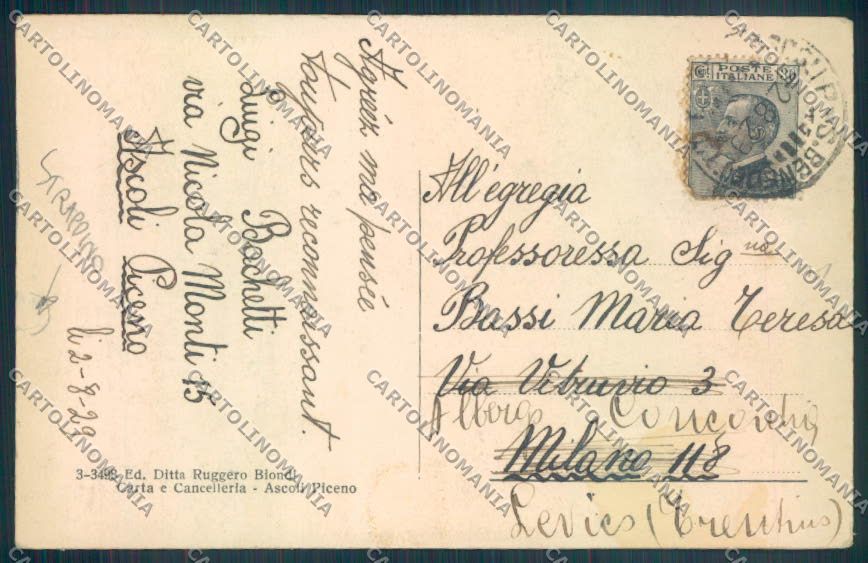 Agréez ma pensée
toujours reconnaissant.
Luigi Bachetti
via Nicola Monti 15
Ascoli Piceno
li 2-8-29
3-3498 Ed. Ditta Ruggero Biondi
Carta e Cancelleria - Ascoli Piceno
POSTE
ITALIANE
All'egregia
Professoressa Sig na
Bassi Maria Teresa
Via Vitruvio 3
Albergo Concordia
Milano 118
Levico (Trentino)
CARTOLINOMANIA